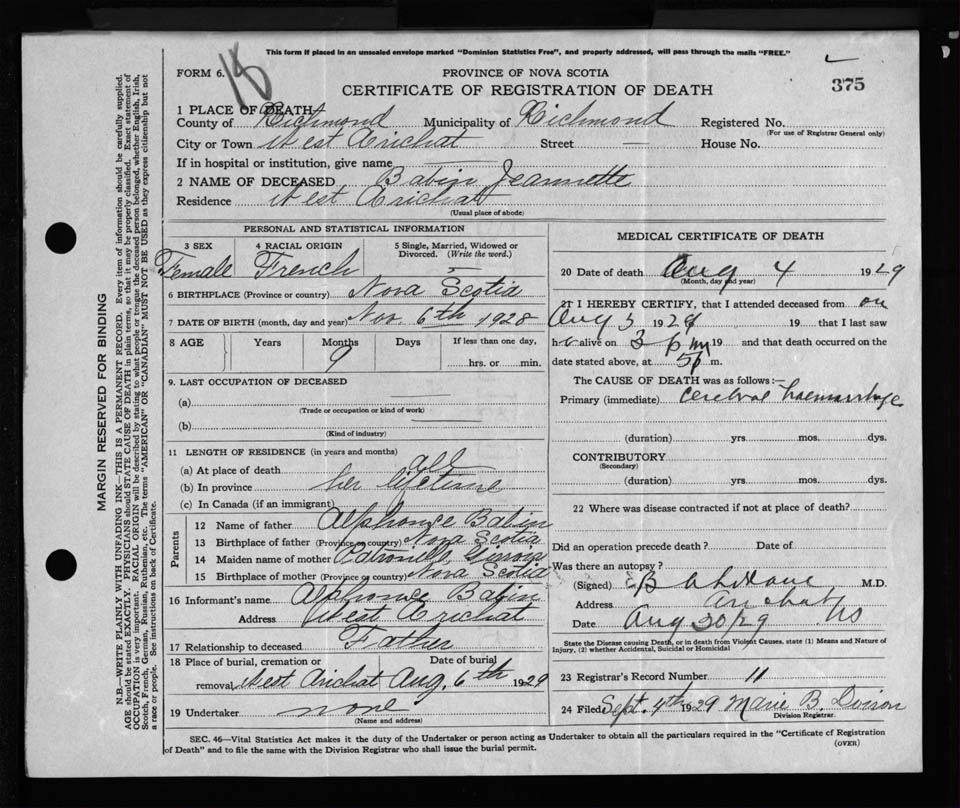 This form if placed in an unsealed envelope marked "Dominion Statistics Free", and properly addressed, will pass through the mails "FREE."
18
FORM 6.
PROVINCE OF NOVA SCOTIA
375
CERTIFICATE OF REGISTRATION OF DEATH
1 PLACE OF DEATH
County of Richmond Municipality of Richmond Registered No.
(For use of Registrar General only)
City or Town West Arichat Street — House No.
If in hospital or institution, give name —
2 NAME OF DECEASED Babin Jeannette
Residence West Arichat
(Usual place of abode)
PERSONAL AND STATISTICAL INFORMATION
3 SEX Female
4 RACIAL ORIGIN French
5 Single, Married, Widowed or Divorced. (Write the word.)
6 BIRTHPLACE (Province or country) Nova Scotia
7 DATE OF BIRTH (month, day and year) Nov. 6th 1928
8 AGE Years Months Days If less than one day,
9
hrs. or min.
9. LAST OCCUPATION OF DECEASED
(a)
(Trade or occupation or kind of work)
(b)
(Kind of industry)
11 LENGTH OF RESIDENCE (in years and months)
(a) At place of death all
(b) In province her lifetime
(c) In Canada (if an immigrant)
Parents
12 Name of father Alphonse Babin
13 Birthplace of father (Province or country) Nova Scotia
14 Maiden name of mother
15 Birthplace of mother (Province or country) Nova Scotia
16 Informant's name Alphonse Babin
Address West Arichat
17 Relationship to deceased Father
18 Place of burial, cremation or Date of burial
removal West Arichat Aug. 6th 1929
19 Undertaker none
(Name and address)
MEDICAL CERTIFICATE OF DEATH
20 Date of death Aug 4 1929
(Month, day and year)
21 I HEREBY CERTIFY, that I attended deceased from on
Aug 3 192 19 that I last saw
h alive on 3 pm 19 and that death occurred on the
date stated above, at 5 p m.
The CAUSE OF DEATH was as follows:—
Primary (immediate) cerebral haemarrhage
(duration) yrs. mos. dys.
CONTRIBUTORY
(Secondary)
(duration) yrs. mos. dys.
22 Where was disease contracted if not at place of death?
Did an operation precede death? Date of
Was there an autopsy?
(Signed) M.D.
Address Arichat NS
Date Aug 30/29
State the Disease causing Death, or in death from Violent Causes, state (1) Means and Nature of
Injury, (2) whether Accidental, Suicidal or Homicidal
23 Registrar's Record Number 11
24 Filed Sept. 4th 1929 Marie B.
Division Registrar.
SEC. 46—Vital Statistics Act makes it the duty of the Undertaker or person acting as Undertaker to obtain all the particulars required in the "Certificate of Registration
of Death" and to file the same with the Division Registrar who shall issue the burial permit.
(OVER)
MARGIN RESERVED FOR BINDING
N.B.—WRITE PLAINLY WITH UNFADING INK—THIS IS A PERMANENT RECORD. Every item of information should be carefully supplied.
AGE should be stated EXACTLY. PHYSICIANS should STATE CAUSE OF DEATH in plain terms, so that it may be properly classified. Exact statement of
OCCUPATION is very important. RACIAL ORIGIN will be described by stating to what people or tongue the deceased person belonged, whether English, Irish,
Scotch, French, German, Russian, Ruthenian, etc. The terms "AMERICAN" OR "CANADIAN" MUST NOT BE USED as they express citizenship but not
a race or people. See instructions on back of Certificate.